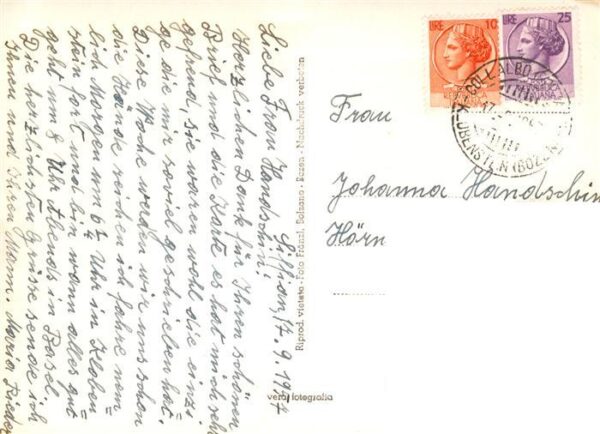 Siffian, 17. 9. 1957
Liebe Frau Handschin!
Herzlichen Dank für Ihren schönen
Brief und die Karte es hat mich sehr
gefreut, sie waren wohl die einzi=
ge die mir soviel geschrieben hat.
Diese Woche werden wir uns schon
die Hände reichen ich fahre nem
lich Morgen um 6¼ Uhr in Kloben
stein fort und bin wann alles gut
geht um 8 Uhr Abends in Basel.
Die herzlichsten Grüsse sende ich
Ihnen und Ihren Mann. Maria Rieder
Riprod. vietata - Foto Fränzl, Bolzano - Bozen - Nachdruck verboten
vera fotografia
LIRE 10
LIRE 25
COLLALBO
KLOBENSTEIN (BOZEN)
Frau
Johanna Handschin
Hörn